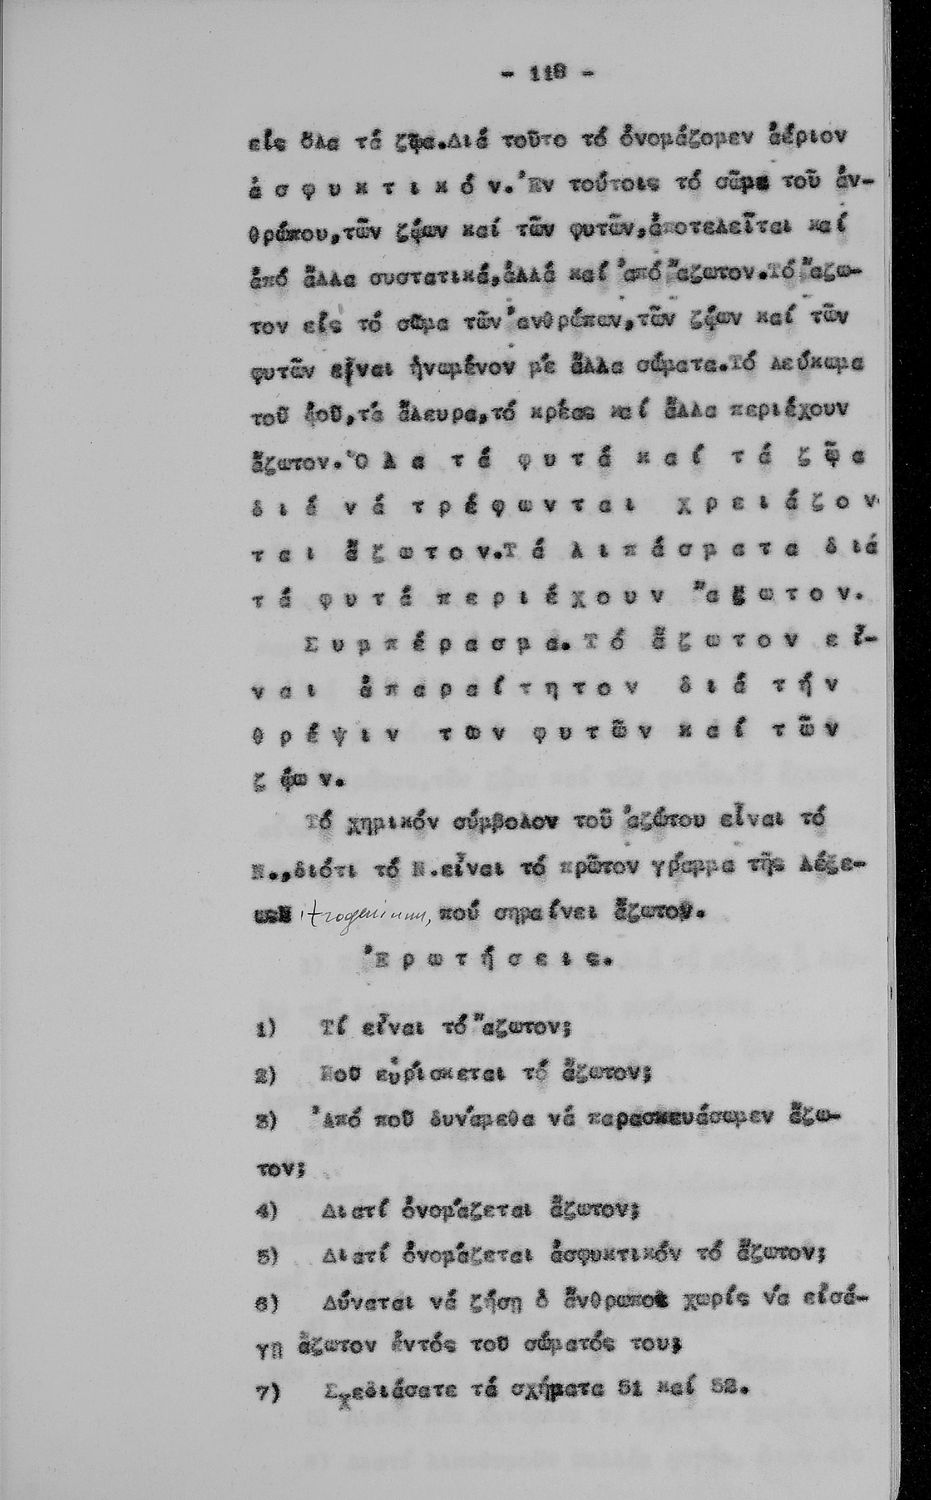 - 118 -
εἰς ὅλα τά ζῷα.Διά τοῦτο τό ὀνομάζομεν ἀέριον
ἀ σ φ υ κ τ ι κ ό ν. Ἐν τούτοις τό σῶμα τοῦ ἀν-
θρώπου,τῶν ζῴων καί τῶν φυτῶν,ἀποτελεῖται καί
ἀπό ἄλλα συστατικά,ἀλλά καί ἀπό ἄζωτον.Τό ἄζω-
τον εἰς τό σῶμα τῶν ἀνθρώπων,τῶν ζῴων καί τῶν
φυτῶν εἶναι ἡνωμένον μέ ἄλλα σώματα.Τό λεύκωμα
τοῦ ᾠοῦ,τά ἄλευρα,τό κρέας καί ἄλλα περιέχουν
ἄζωτον. Ὅ λ α τ ά φ υ τ ά κ α ί τ ά ζ ῷ α
δ ι ά ν ά τ ρ έ φ ω ν τ α ι χ ρ ε ι ά ζ ο ν
τ α ι ἄ ζ ω τ ο ν.Τ ά λ ι π ά σ μ α τ α δ ι ά
τ ά φ υ τ ά π ε ρ ι έ χ ο υ ν ἄ ζ ω τ ο ν.
Σ υ μ π έ ρ α σ μ α. Τ ό ἄ ζ ω τ ο ν ε ἶ-
ν α ι ἀ π α ρ α ί τ η τ ο ν δ ι ά τ ή ν
θ ρ έ ψ ι ν τ ω ν φ υ τ ῶ ν κ α ί τ ῶ ν
ζ ῴ ω ν.
Τό χημικόν σύμβολον τοῦ ἀζώτου εἶναι τό
N.,διότι τό N.εἶναι τό πρῶτον γράμμα τῆς λέξε-
ως N itrogenium, πού σημαίνει ἄζωτον.
Ἐ ρ ω τ ή σ ε ι ς.
1) Τί εἶναι τό ἄζωτον;
2) Ποῦ εὑρίσκεται τό ἄζωτον;
3) Ἀπό ποῦ δυνάμεθα νά παρασκευάσωμεν ἄζω-
τον;
4) Διατί ὀνομάζεται ἄζωτον;
5) Διατί ὀνομάζεται ἀσφυκτικόν τό ἄζωτον;
6) Δύναται νά ζήσῃ ὁ ἄνθρωπος χωρίς νά εἰσά-
γῃ ἄζωτον ἐντός τοῦ σώματός του;
7) Σχεδιάσατε τά σχήματα 51 καί 52.